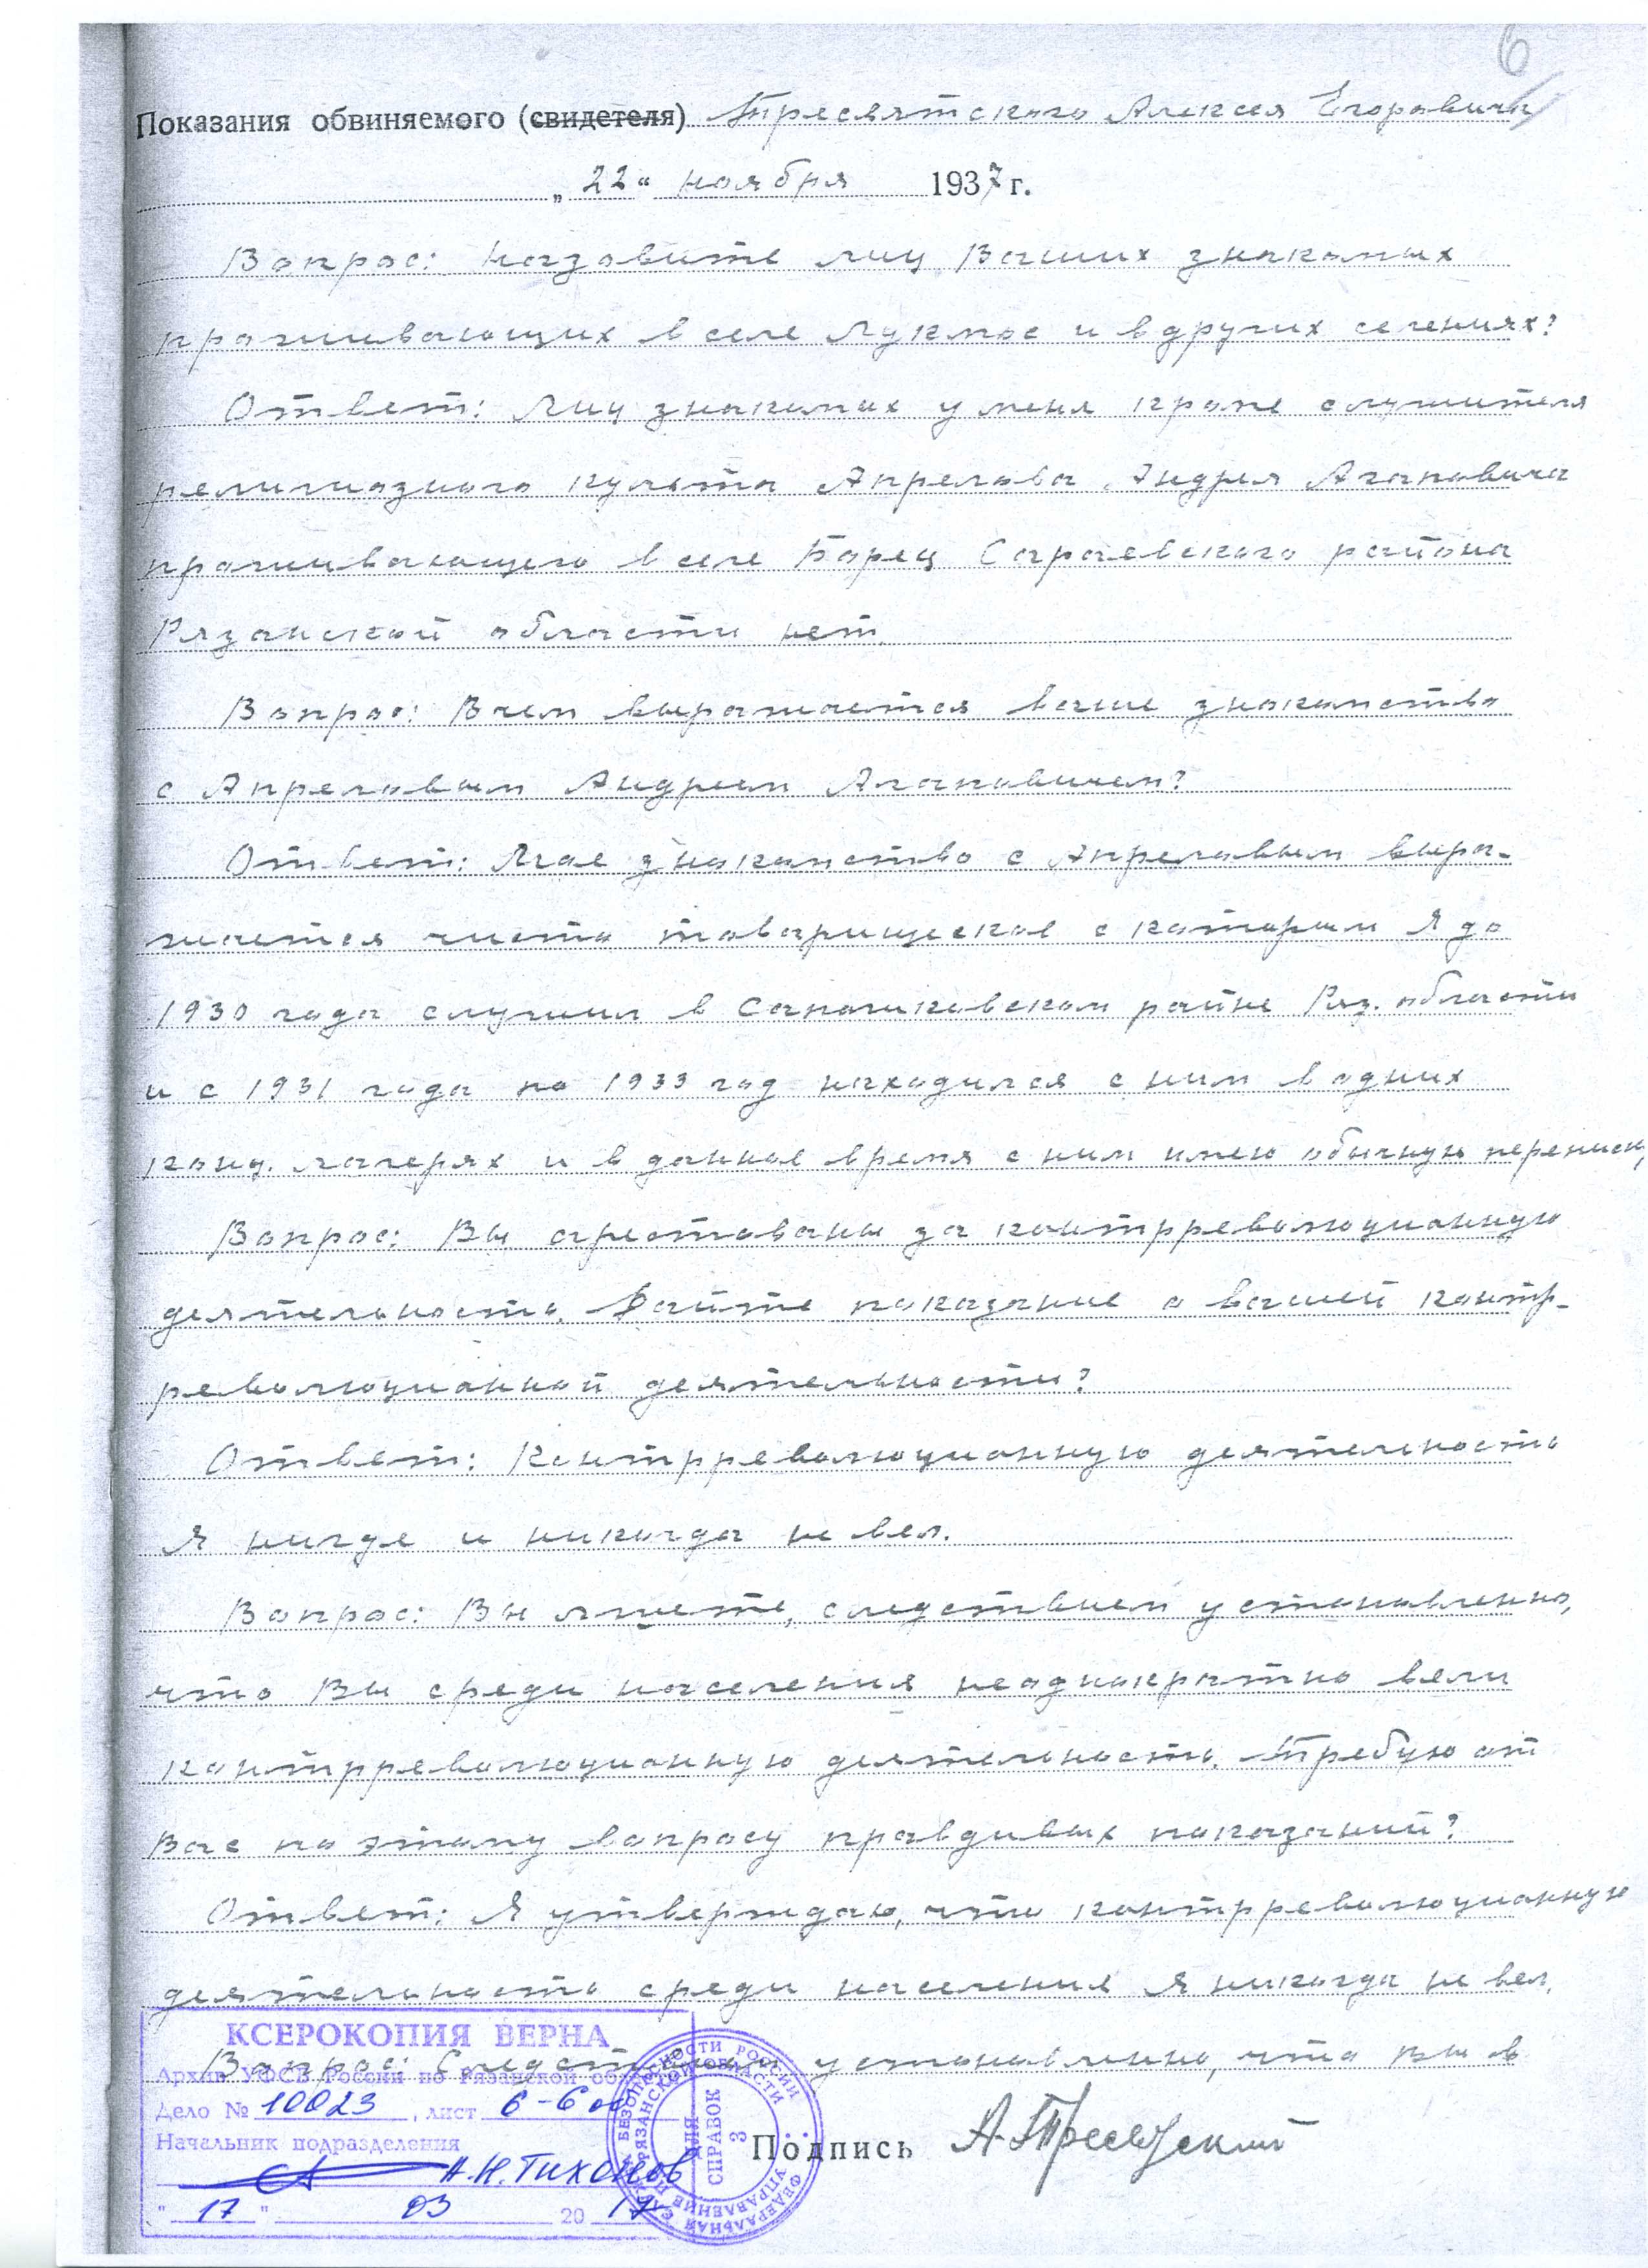 6
Показания обвиняемого (свидетеля) Тресвятского Алексея Егоровича
„22“ ноября 1937 г.
Вопрос: Назовите лиц Ваших знакомых
проживающих в селе Лукмос и в других селениях?
Ответ: Лиц знакомых у меня кроме служителя
религиозного культа Апрелова Андрея Агаповича
проживающего в селе Борец Сараевского района
Рязанской области нет.
Вопрос: В чем выражается ваше знакомство
с Апреловым Андреем Агаповичем?
Ответ: Мое знакомство с Апреловым выра-
жается чисто товарищеское с которым я до
1930 года служил в Сапожковском районе Ряз. области
и с 1931 года по 1933 год находился с ним в одних
конц. лагерях и в данное время с ним имею обычную переписку
Вопрос: Вы арестованы за контрреволюционную
деятельность. Дайте показание о вашей контр-
революционной деятельности?
Ответ: Контрреволюционную деятельность
я нигде и никогда не вел.
Вопрос: Вы лжете, следствием установлено,
что Вы среди населения неоднократно вели
контрреволюционную деятельность. Требую от
Вас по этому вопросу правдивых показаний?
Ответ: Я утверждаю, что контрреволюционную
деятельность среди населения я никогда не вел.
Вопрос: Следствием установлено, что вы в
Подпись А. Тресвятский
КСЕРОКОПИЯ ВЕРНА
Архив УФСБ России по Рязанской области
Дело № 10023, лист 6-6 об
Начальник подразделения
А.Н. Тихонов
"17" 03 2017
ФЕДЕРАЛЬНАЯ СЛУЖБА БЕЗОПАСНОСТИ РОССИИ
УПРАВЛЕНИЕ ПО РЯЗАНСКОЙ ОБЛАСТИ
ДЛЯ
СПРАВОК
3